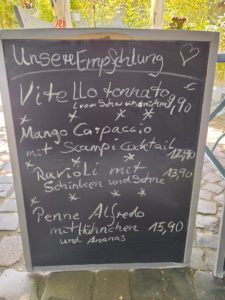 Unsere Empfehlung
Vitello tonnato
(vom Schweinerücken) 9,90
Mango Carpaccio
mit Scampi Cocktail
12,90
Ravioli mit 13,90
Schinken und Sahne
Penne Alfredo
mit Hähnchen 15,90
und Ananas